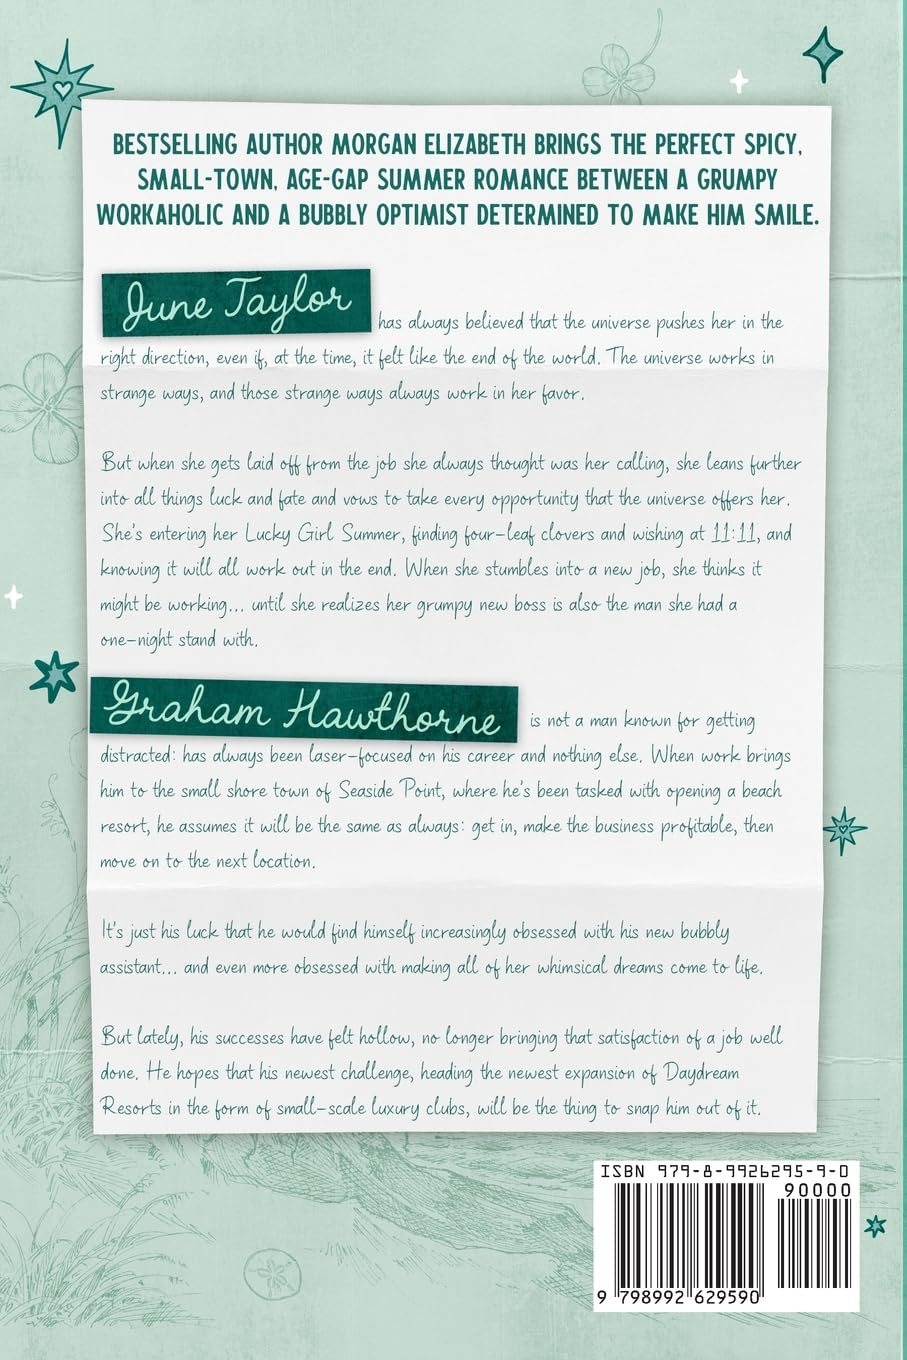 BESTSELLING AUTHOR MORGAN ELIZABETH BRINGS THE PERFECT SPICY,
SMALL-TOWN, AGE-GAP SUMMER ROMANCE BETWEEN A GRUMPY
WORKAHOLIC AND A BUBBLY OPTIMIST DETERMINED TO MAKE HIM SMILE.
June Taylor has always believed that the universe pushes her in the
right direction, even if, at the time, it felt like the end of the world. The universe works in
strange ways, and those strange ways always work in her favor.
But when she gets laid off from the job she always thought was her calling, she leans further
into all things luck and fate and vows to take every opportunity that the universe offers her.
She's entering her Lucky Girl Summer, finding four-leaf clovers and wishing at 11:11, and
knowing it will all work out in the end. When she stumbles into a new job, she thinks it
might be working... until she realizes her grumpy new boss is also the man she had a
one-night stand with.
Graham Hawthorne is not a man known for getting
distracted: has always been laser-focused on his career and nothing else. When work brings
him to the small shore town of Seaside Point, where he's been tasked with opening a beach
resort, he assumes it will be the same as always: get in, make the business profitable, then
move on to the next location.
It's just his luck that he would find himself increasingly obsessed with his new bubbly
assistant... and even more obsessed with making all of her whimsical dreams come to life.
But lately, his successes have felt hollow, no longer bringing that satisfaction of a job well
done. He hopes that his newest challenge, heading the newest expansion of Daydream
Resorts in the form of small-scale luxury clubs, will be the thing to snap him out of it.
ISBN 979-8-9926295-9-0
90000
9 798992 629590